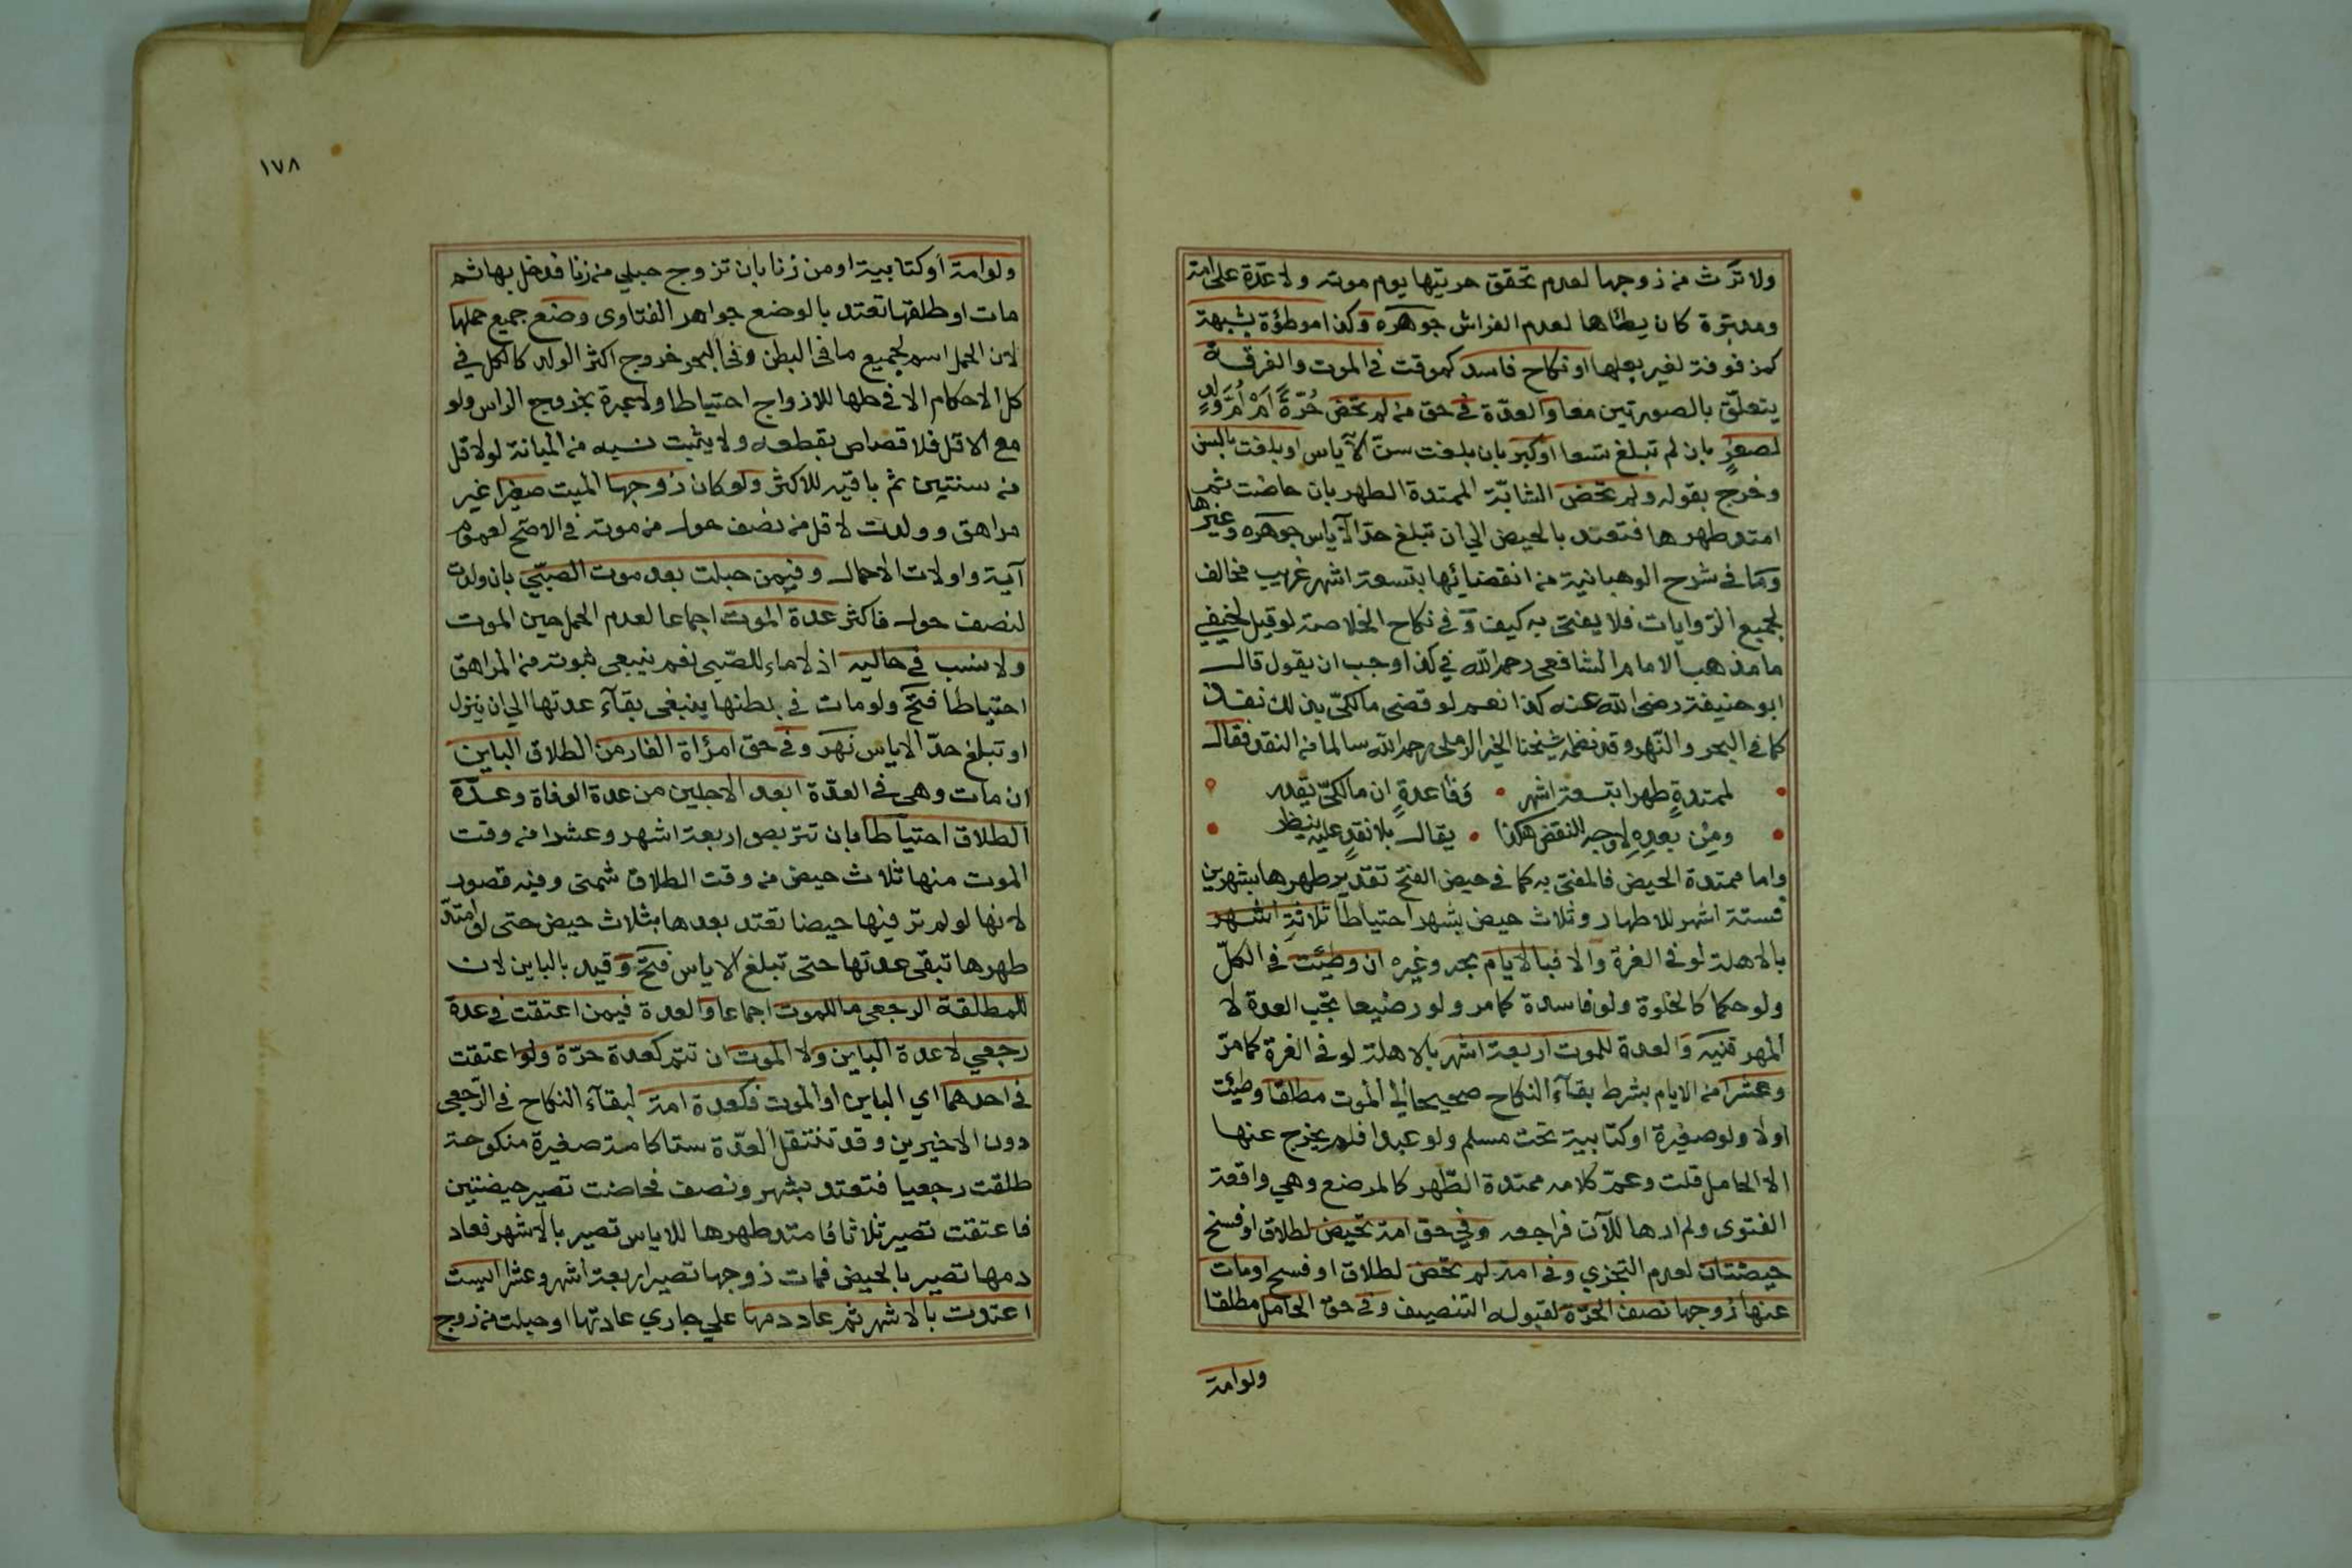 ولا ترث من زوجها لعدم تحقق حريتها يوم موته ولا عدة على امة
ومدبرة كان يطئاها لعدم الفراش جوهره وكذا موطؤة بشبهة
كمزفوفة لغير بعلها او نكاح فاسد كموقت في الموت والفرقة
يتعلق بالصورتين معا والعدة في حق من لم تحض حُرّةً اَمْ اُمّ وَلَدٍ
لصغرٍ بان لم تبلغ تسعا اوكبر بان بلغت سن الآياس او بلغت بالسن
وخرج بقوله ولم تحض الشابّة الممتدة الطهر بان حاضت ثم
امتد طهرها فتعتد بالحيض الي ان تبلغ حدّ الآياس جوهره وغيرها
وما في شرح الوهبانية من انقضائها بتسعة اشهر غريب مخالف
لجميع الروايات فلا يفتى به كيف وفي نكاح الخلاصة لو قيل لحنيفي
ما مذهب الامام الشافعي رحمه الله في كذا وجب ان يقول قال
ابو حنيفة رضي الله عنه كذا نعم لو قضى مالكيّ بذلك نفذ
كما في البحر والنّهر وقد نظمه شيخنا الخير الرملي رحمه الله سالما من النقد فقال
لممتدةٍ طهرا بتسعة اشهر • وَفَا عدةٍ ان مالكيّ يقدر
ومِن بعدِهِ لا وجه للنقض هكذا • يقال بلا نقدٍ عليه ينظر
واما ممتدة الحيض فالمفتى به كما في حيض الفتح تقدير طهرها بشهرين
فستة اشهر للاطهار وثلاث حيض بشهر احتياطا ثلاثةِ اشهر
بالاهلة لو في الغرة والا فبالايام بحر وغيره ان وطئت في الكلّ
ولو حكما كالخلوة ولو فاسدة كما مر ولو رضيعا تجب العدة لا
المهر قنيه وَالعدة للموت اربعة اشهر بالاهلة لو في الغرة كما مرّ
وعشر من الايام بشرط بقآء النكاح صحيحا الي الموت مطلقا وطئت
اولا ولو صغيرة او كتابية تحت مسلم ولو عبدا فلم يخرج عنها
الا الحامل قلت وعمّ كلامه ممتدة الطّهر كالمرضع وهي واقعة
الفتوى ولم ارها للآن فراجعه وفي حق امة تحيض لطلاق او فسخ
حيضتان لعدم التجزي وفي امة لم تحض لطلاق او فسخ او مات
عنها زوجها نصف الحرّة لقبوله التنصيف وفي حق الحامل مطلقا
ولو امة
١٧٨
ولو امة او كتابية او من زنا بان تزوج حبلي من زنا فدخل بها ثم
مات او طلقها تعتد بالوضع جواهر الفتاوى وضع جميع حملها
لان الحمل اسم لجميع ما في البطن وفي البحر خروج اكثر الولد كالكل في
كل الاحكام الا في حلها للازواج احتياطا ولا عبرة بخروج الراس ولو
مع الاقل فلا قصاص بقطعه ولا يثبت نسبه من المبانة لو لاقل
من سنتين ثم باقيه للاكثر ولو كان زوجها الميت صغيرا غير
مراهق وولدت لاقل من نصف حول من موته في الاصح لعموم
آية واولات الاحمال وفيمن حبلت بعد موت الصبّي بان ولدت
لنصف حول فاكثر عدة الموت اجماعا لعدم الحمل حين الموت
ولا نسب في حاليه اذ لا ماء للصّبي نعم ينبغي ثبوته من المراهق
احتياطا فتح ولو مات في بطنها ينبغي بقآء عدتها الي ان ينزل
او تبلغ حدّ الاياس نهر وفي حق امرأة الفار من الطلاق الباين
ان مات وهي في العدّة ابعد الاجلين من عدة الوفاة وعدّة
الطلاق احتياطا بان تتربص اربعة اشهر وعشرا من وقت
الموت منها ثلاث حيض من وقت الطلاق شمنى وفيه قصور
لانها لو لم تر فيها حيضا تعتد بعدها بثلاث حيض حتى لو امتدّ
طهرها تبقى عدتها حتى تبلغ الاياس فتح وقيد بالباين لان
للمطلقة الرجعي ما للموت اجماعا والعدة فيمن اعتقت في عدة
رجعي لا عدة الباين ولا الموت ان تتم كعدة حرّة ولو اعتقت
في احدهما اي الباين او الموت فكعدة امة لبقآء النكاح في الرّجعي
دون الاخيرين وقد تنتقل العدّة ستا كامة صغيرة منكوحة
طلقت رجعيا فتعتد بشهر ونصف فحاضت تصير حيضتين
فاعتقت تصير ثلاثا فامتد طهرها للاياس تصير بالاشهر فعاد
دمها تصير بالحيض فمات زوجها تصير اربعة اشهر وعشرا ايست
اعتدت بالاشهر ثم عاد دمها علي جاري عادتها او حبلت من زوج